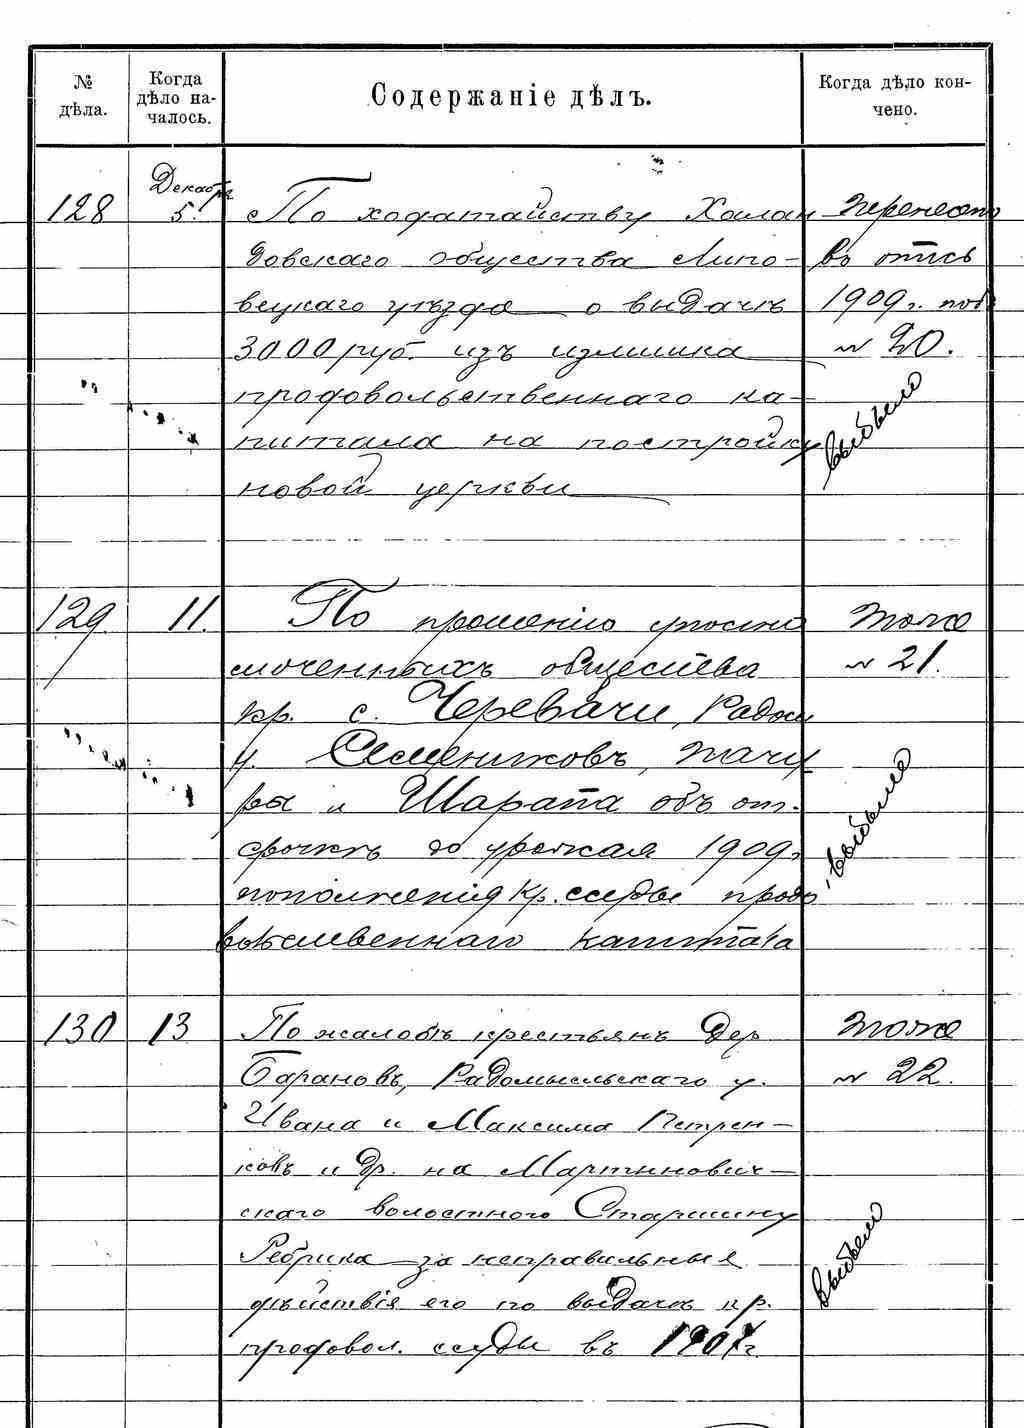 № дѣла.
Когда дѣло на-
чалось.
Содержаніе дѣлъ.
Когда дѣло кон-
чено.
128
Декабря
5.
По ходатайству Хоилан
довскаго общества Липо-
вецкаго уѣзда о выдачѣ
3000 руб. изъ излишка
продовольственнаго ка-
питала на постройку
новой церкви
Перенесено
въ опись
1909 г. под
№ 20.
выбыло
129.
11.
По прошенію уполно
моченныхъ общества
кр. с. Черевачи, Радом
у. Семениковъ,
ры и Шарапа объ от-
срочкѣ до урожая 1909 г
пополненія кр. ссуды продо
вольственнаго капитала
тоже
№ 21.
выбыло
130
13
По жалобѣ крестьянъ дер
Барановъ, Радомысльскаго у.
Ивана и Максима Петрен-
ковъ и др. на Мартинович-
скаго волостного Старшину
Ребрика за неправильныя
дѣйствія его по выдачѣ кр.
продовол. ссуды въ 1907 г.
тоже
№ 22.
выбыло